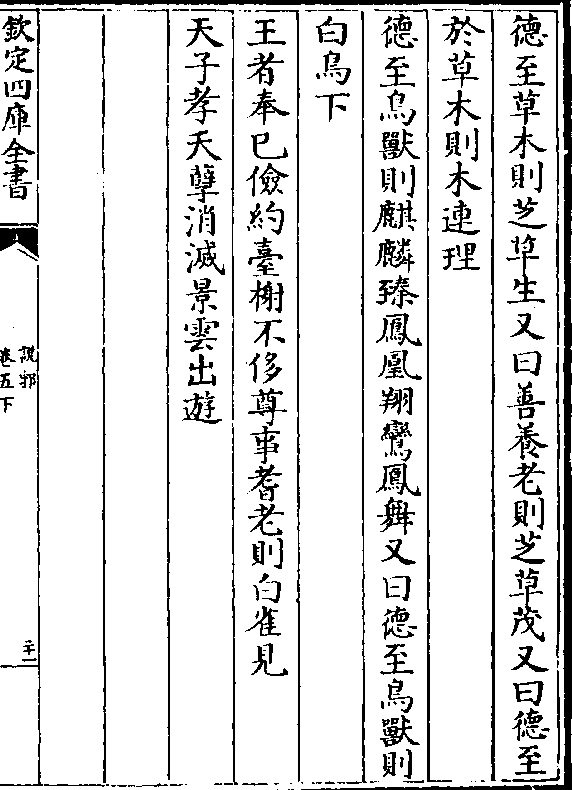 德至草木則芝草生又曰善養老則芝草茂又曰德至
於草木則木連理
德至鳥獸則麒麟臻鳳凰翔鸞鳳舞又曰德至鳥獸則
白烏下
王者奉巳儉約臺榭不侈尊事耆老則白雀見
天子孝天孽消滅景雲出遊
欽定四庫全書
說郛
卷五下
二十一